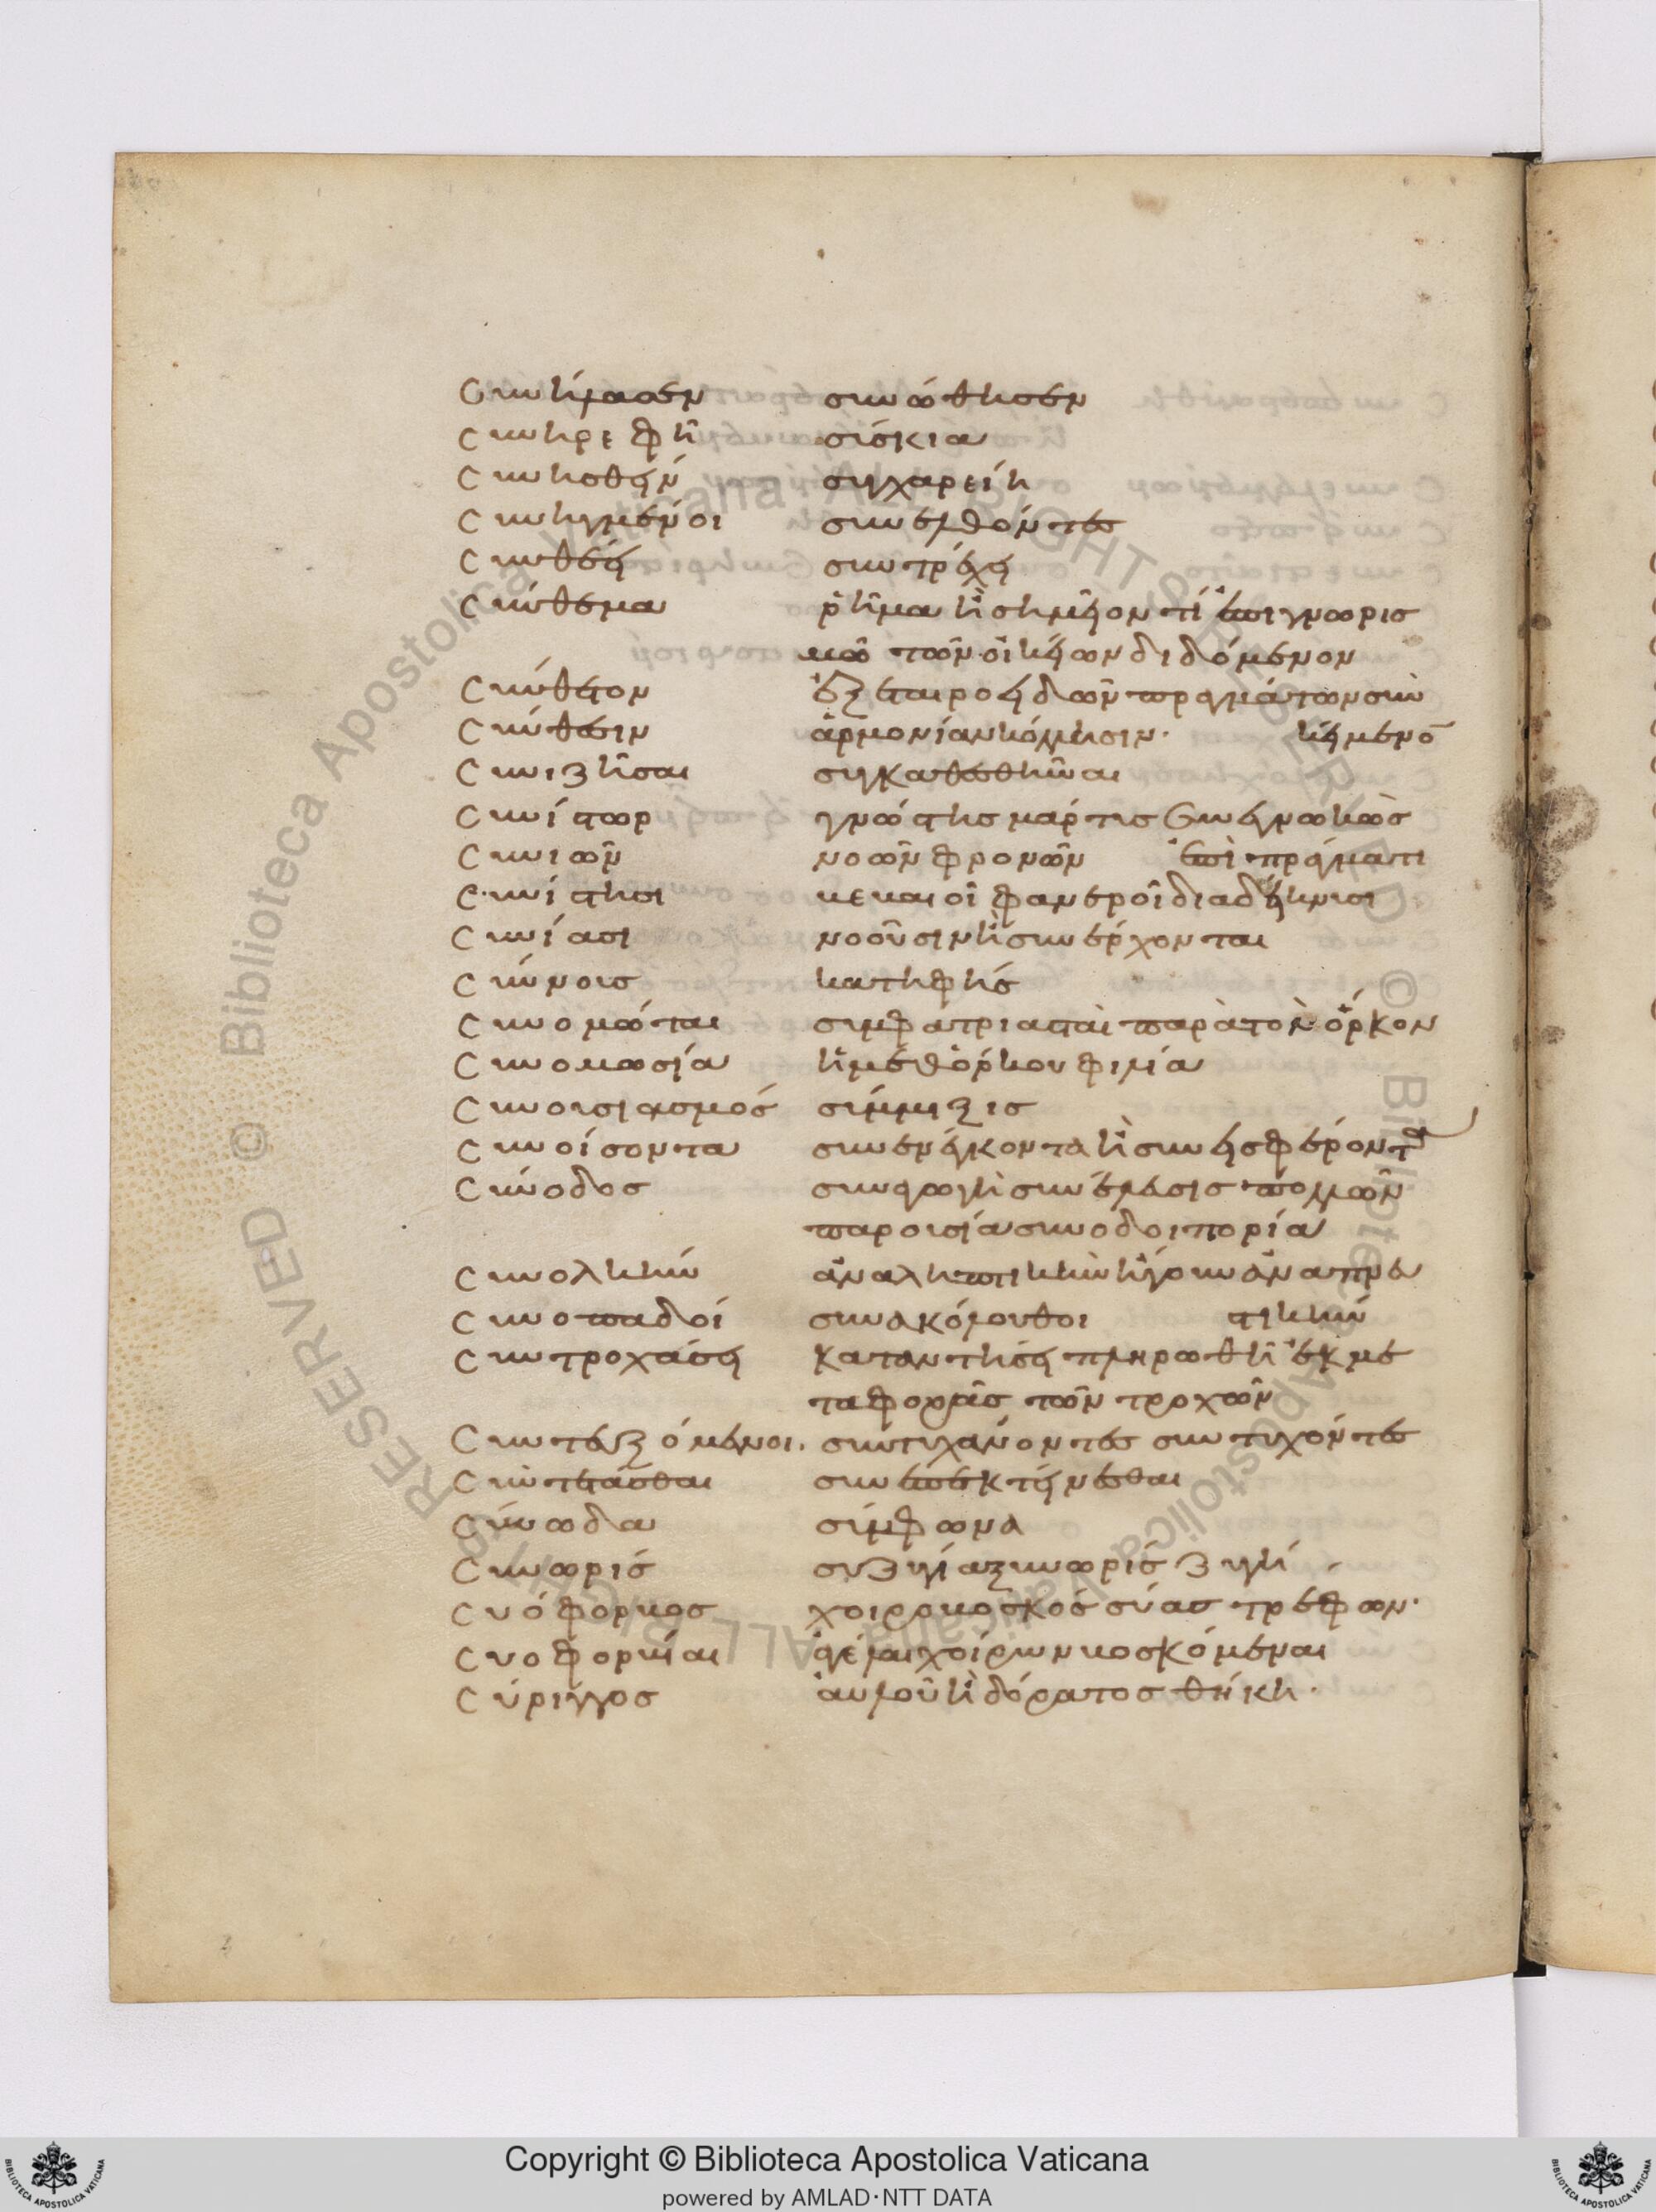 Συνήλασεν συνώθησεν
Συνηρεφῆ σύσκια
Συνησθείη συγχαρείη
Συνηγμένοι συνελθόντες
Συνθέει συντρέχει
Σύνθεμα ῥῆμα ἢ σημεῖον τὶ ἐπι γνωρισ
μῶ τῶν οἰκείων διδόμενον
Σύνθετον ἐξ ἑταιροειδῶν πραγμάτων συγ
Σύνθεσιν ἁρμονίαν κόλλησιν· κείμενον
Συνιζῆσαι συγκαθεσθῆναι
Συνίστωρ γνώστης μάρτυς συνεγνωκὼς
Συνιῶν νοῶν φρονῶν ἐπὶ πράγματι
Συνίστησι βεβαιοῖ φανεροῖ διαδείκνυσι
Συνίασι νοοῦσιν ἢ συνέρχονται
Σύννους κατηφής
Συνομώται συμφατριασταὶ παρὰ τὸν ὅρκον
Συνομωσία ἡ μεθ' ὅρκου φιλία
Συνουσιασμός σύμμιξις
Συνοίσοντα συνενέγκοντα ἢ συνεισφέροντα
Σύνοδος συναγωγὴ συνέλευσις πολλῶν
παρουσία συνοδοιπορία
Συνολκήν ἀναληπτικὴν ἤγουν ἀναπνευ
Συνοπαδοί συνακόλουθοι στικήν
Συντροχάσει καταντήσει πληρωθῆ ἐκ με
ταφορᾶς τῶν τροχῶν
Συντευξόμενοι. συντυχάνοντες συντυχόντες
Συντετάσθαι συνεπεκτείνεσθαι
Σύνωδα σύμφωνα
Συνωρίς συζυγία ξυνωρίς ζυγή
Συόφορβος χοιροβοσκός σύας τρέφων·
Συοφορβίαι ἀγέλαι χοίρων βοσκόμεναι
Σύριγγος αὐλοῦ ἢ δόρατος θήκη·
Copyright © Biblioteca Apostolica Vaticana
powered by AMLAD·NTT DATA